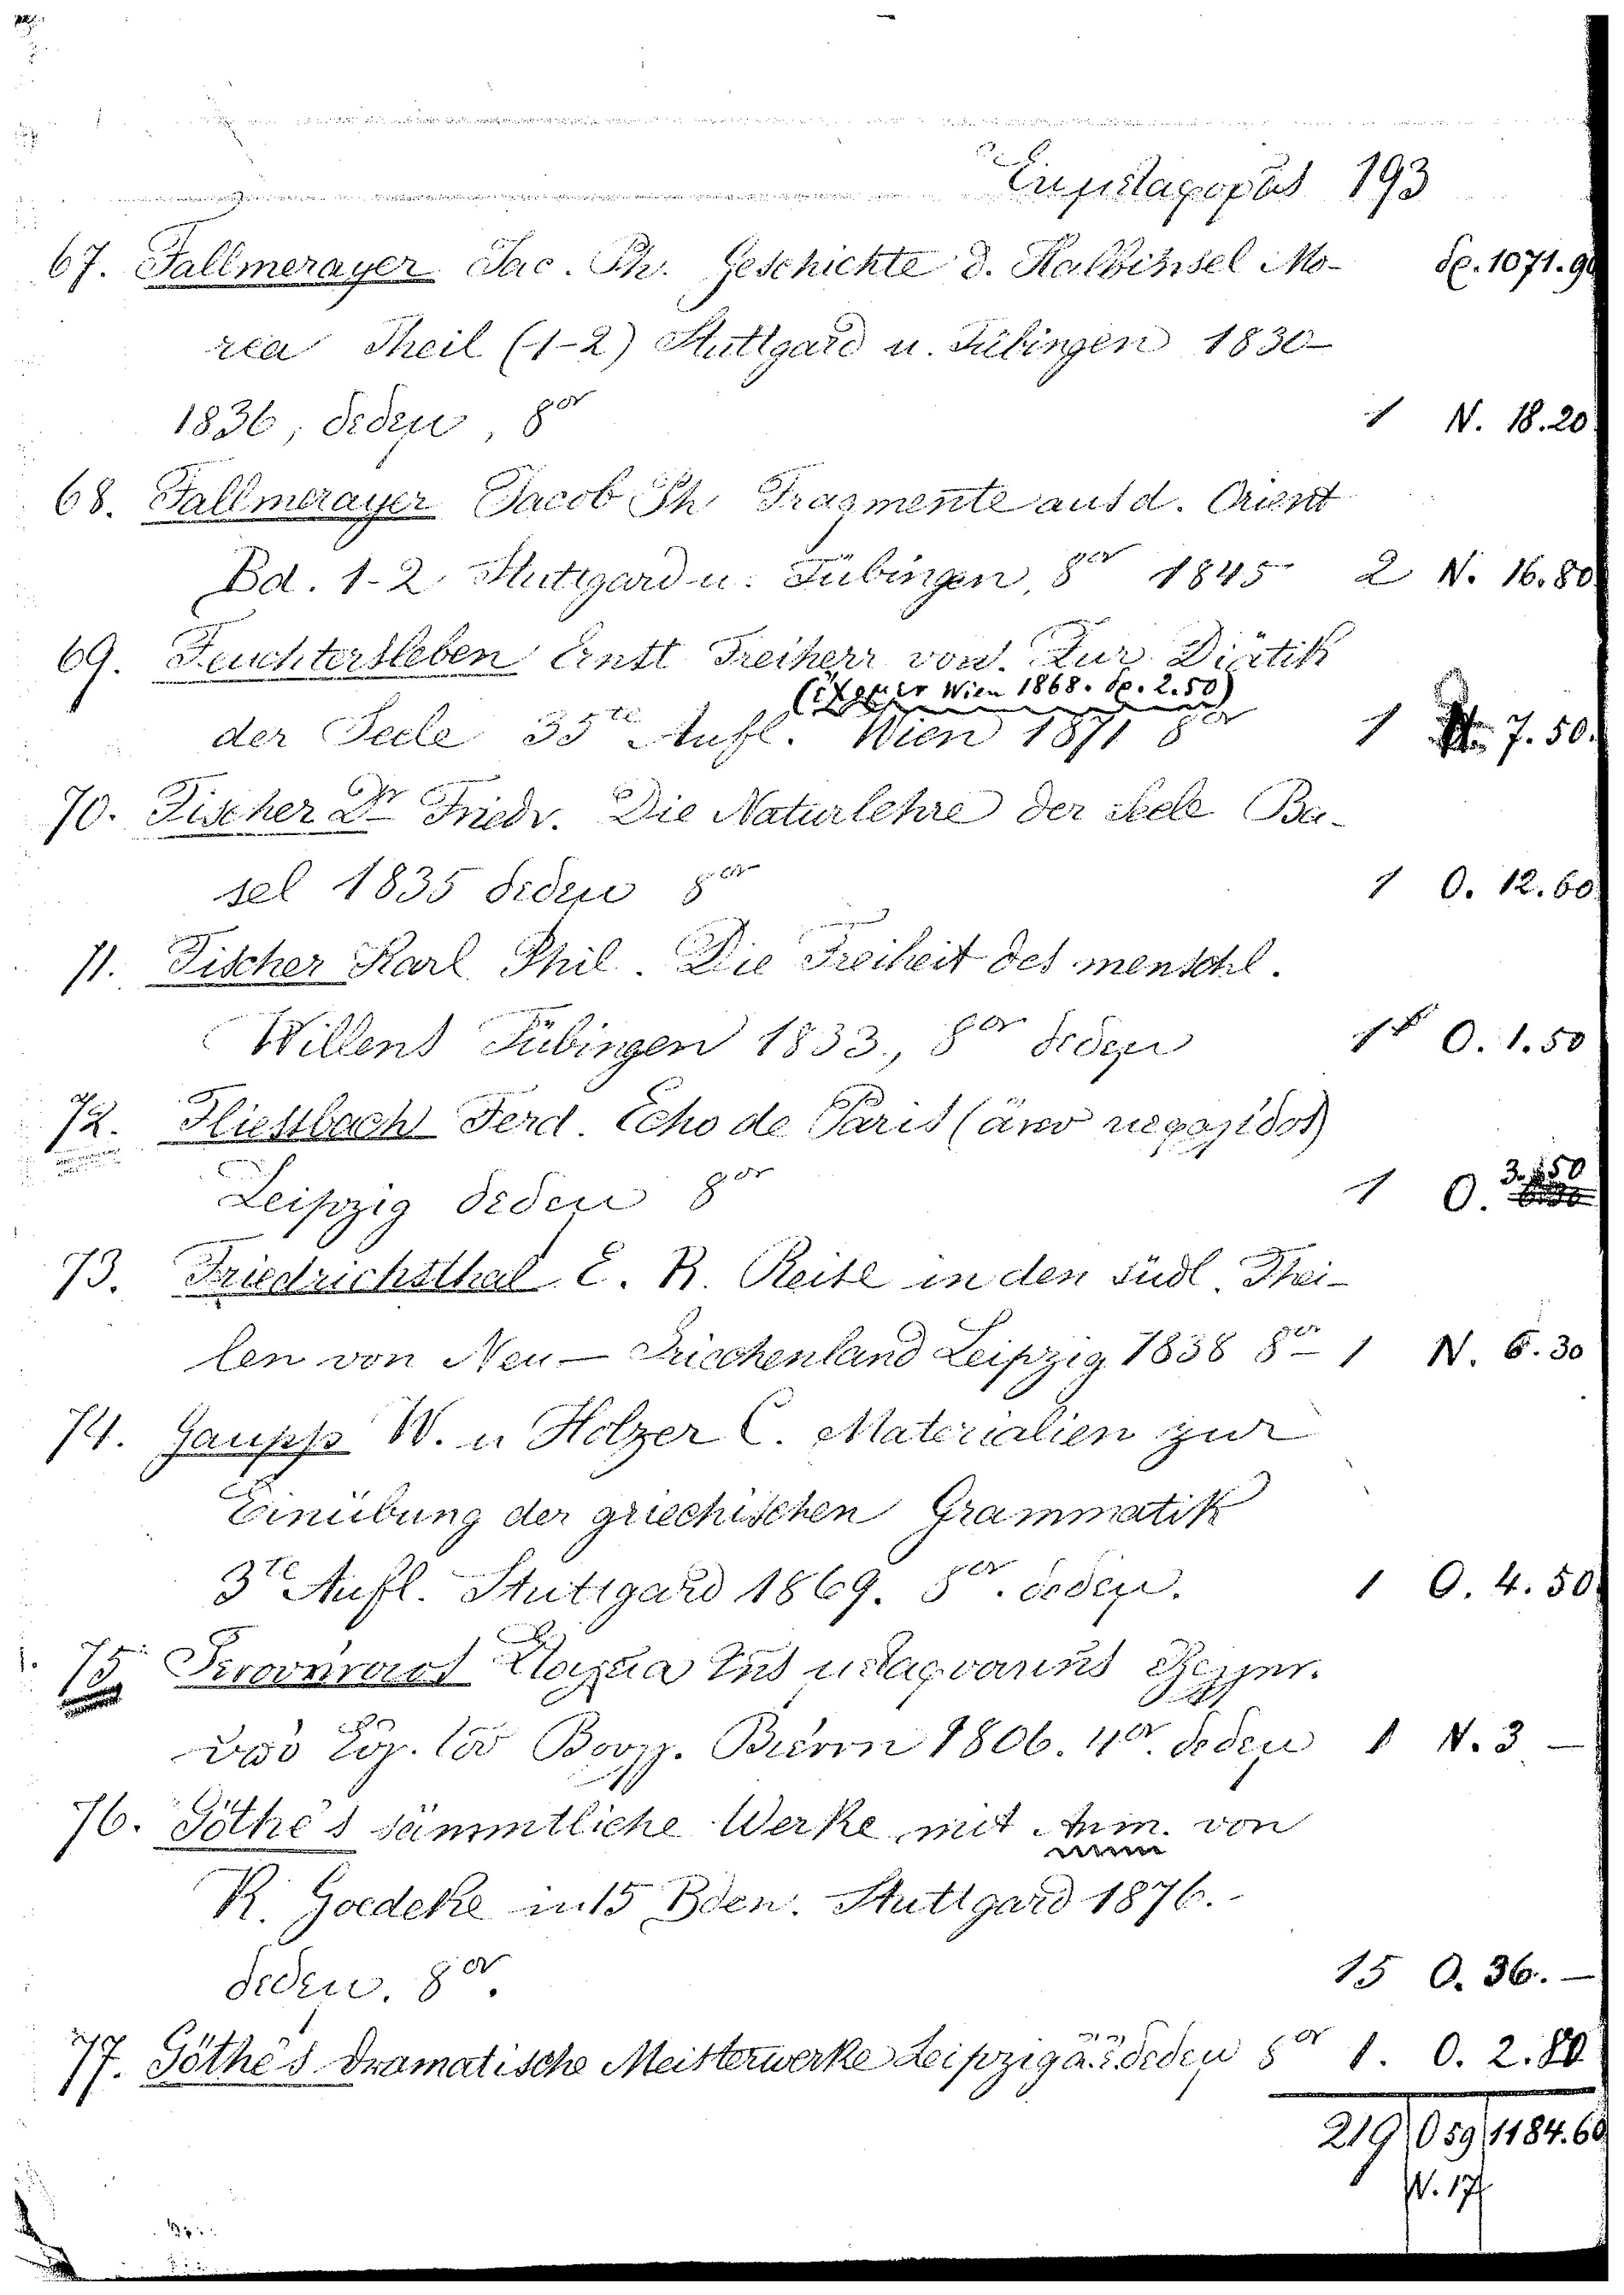 Ἐκ μεταφορᾶς 193
67. Fallmerayer Jac. Ph. Geschichte d. Halbinsel Mo- δρ. 1071.90
rea Theil (1-2) Stuttgard u. Tübingen 1830-
1836, δεδεμ, 8ον 1 N. 18.20
68. Fallmerayer Jacob Ph Fragmente aus d. Orient
Bd. 1-2 Stuttgard u. Tübingen, 8ον 1845 2 N. 16.80
69. Feuchtersleben Ernst Freiherr von. Zur Diätik
Wien 1868. δρ. 2.50)
der Seele 35te Aufl. Wien 1871 8ον 1 7.50.
70. Fischer Dr Friedr. Die Naturlehre der Seele Ba-
sel 1835 δεδεμ 8ον 1 O. 12.60
71. Fischer Karl Phil. Die Freiheit des menschl.
Willens Tübingen 1833., 8ον δεδεμ 1 O. 1.50
72. Fliessbach Ferd. Echo de Paris (ἄνευ
Leipzig δεδεμ 8ον 1 O. 3.50
73. Friedrichsthal E. R. Reise in den südl. Thei-
len von Neu-Griechenland Leipzig 1838 8ον 1 N. 6.30
74. Gaupp W. u Holzer C. Materialien zur
Einübung der griechischen Grammatik
3te Aufl. Stuttgard 1869. 8ον. δεδεμ. 1 O. 4.50
75 τῆς μεταφρασθείσης
ὑπὸ Βιέννῃ 1806. 4ον. δεδεμ 1 N. 3 —
76. Göthe's sämmtliche Werke mit Anm. von
K. Goedeke in 15 Bden. Stuttgard 1876.-
δεδεμ. 8ον. 15 O. 36. —
77. Göthe's dramatische Meisterwerke Leipzig ἄ. ἔ. δεδεμ 8ον 1. O. 2.80
219 O 59 1184.60
N. 17